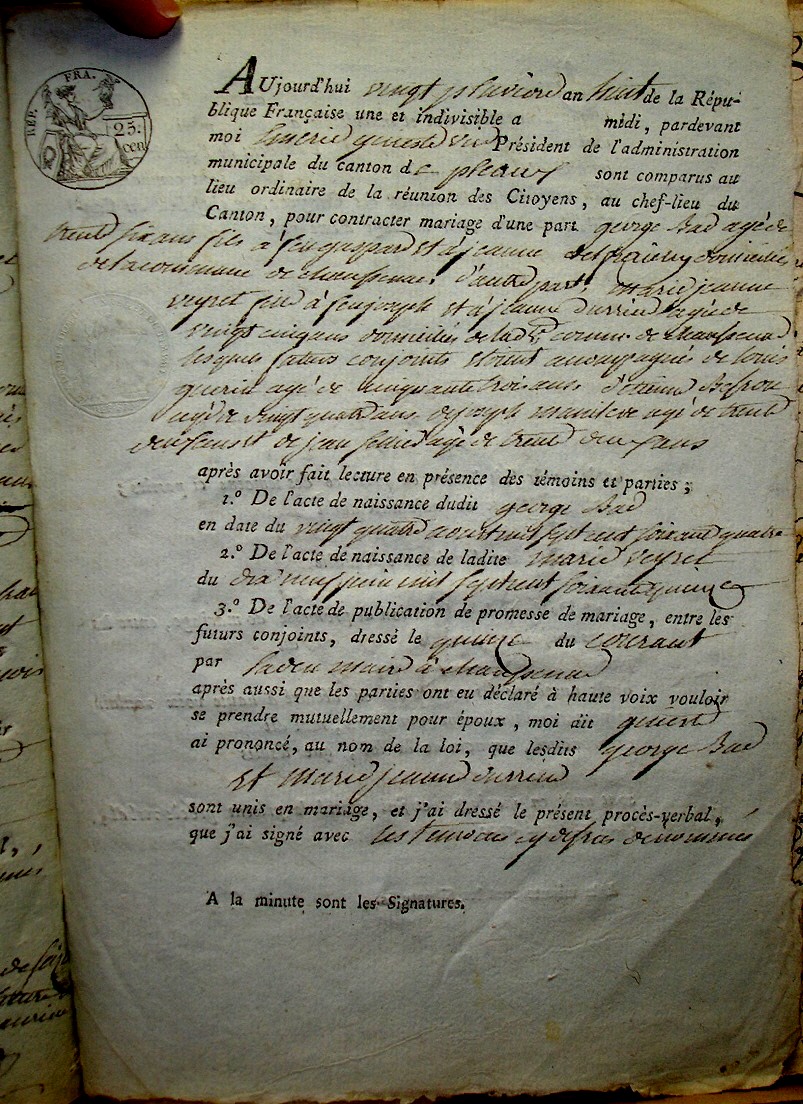 REP. FRA.
25. cen
AUjourd'hui vingt pluviose an huit de la Répu-
blique Française une et indivisible a midi, pardevant
moi Président de l'administration
municipale du canton de pleaux sont comparus au
lieu ordinaire de la réunion des Citoyens, au chef-lieu du
Canton, pour contracter mariage d'une part george Bac agé de
trente six ans fils à feu gaspard et à jeanne domiciliés
de la commune de chaussenac d'autre part marie jeanne
veyret fille à feu joseph et à jeanne durrieu agée de
vingt cinq ans domiciliés de la de comune de chaussenac
lesquels futurs conjoints etoient accompagnés de louis
guerin agé de cinquante trois ans d'etienne
agé de vingt quatre ans de joseph agé de trente
deux ans et de jean agé de trente deux ans
après avoir fait lecture en présence des témoins et parties;
1.º De l'acte de naissance dudit george Bac
en date du vingt quatre aout mil sept cent soixante quatre
2.º De l'acte de naissance de ladite marie veyret
du dix neuf juin mil sept cent soixante quinze
3.º De l'acte de publication de promesse de mariage, entre les
futurs conjoints, dressé le quinze du courant
par ladeu maire à chaussenac
après aussi que les parties ont eu déclaré à haute voix vouloir
se prendre mutuellement pour époux, moi dit
ai prononcé, au nom de la loi, que lesdits george Bac
et marie jeanne durrieu
sont unis en mariage, et j'ai dressé le présent procès-verbal,
que j'ai signé avec les temoins cy dessus denommés
A la minute sont les Signatures.